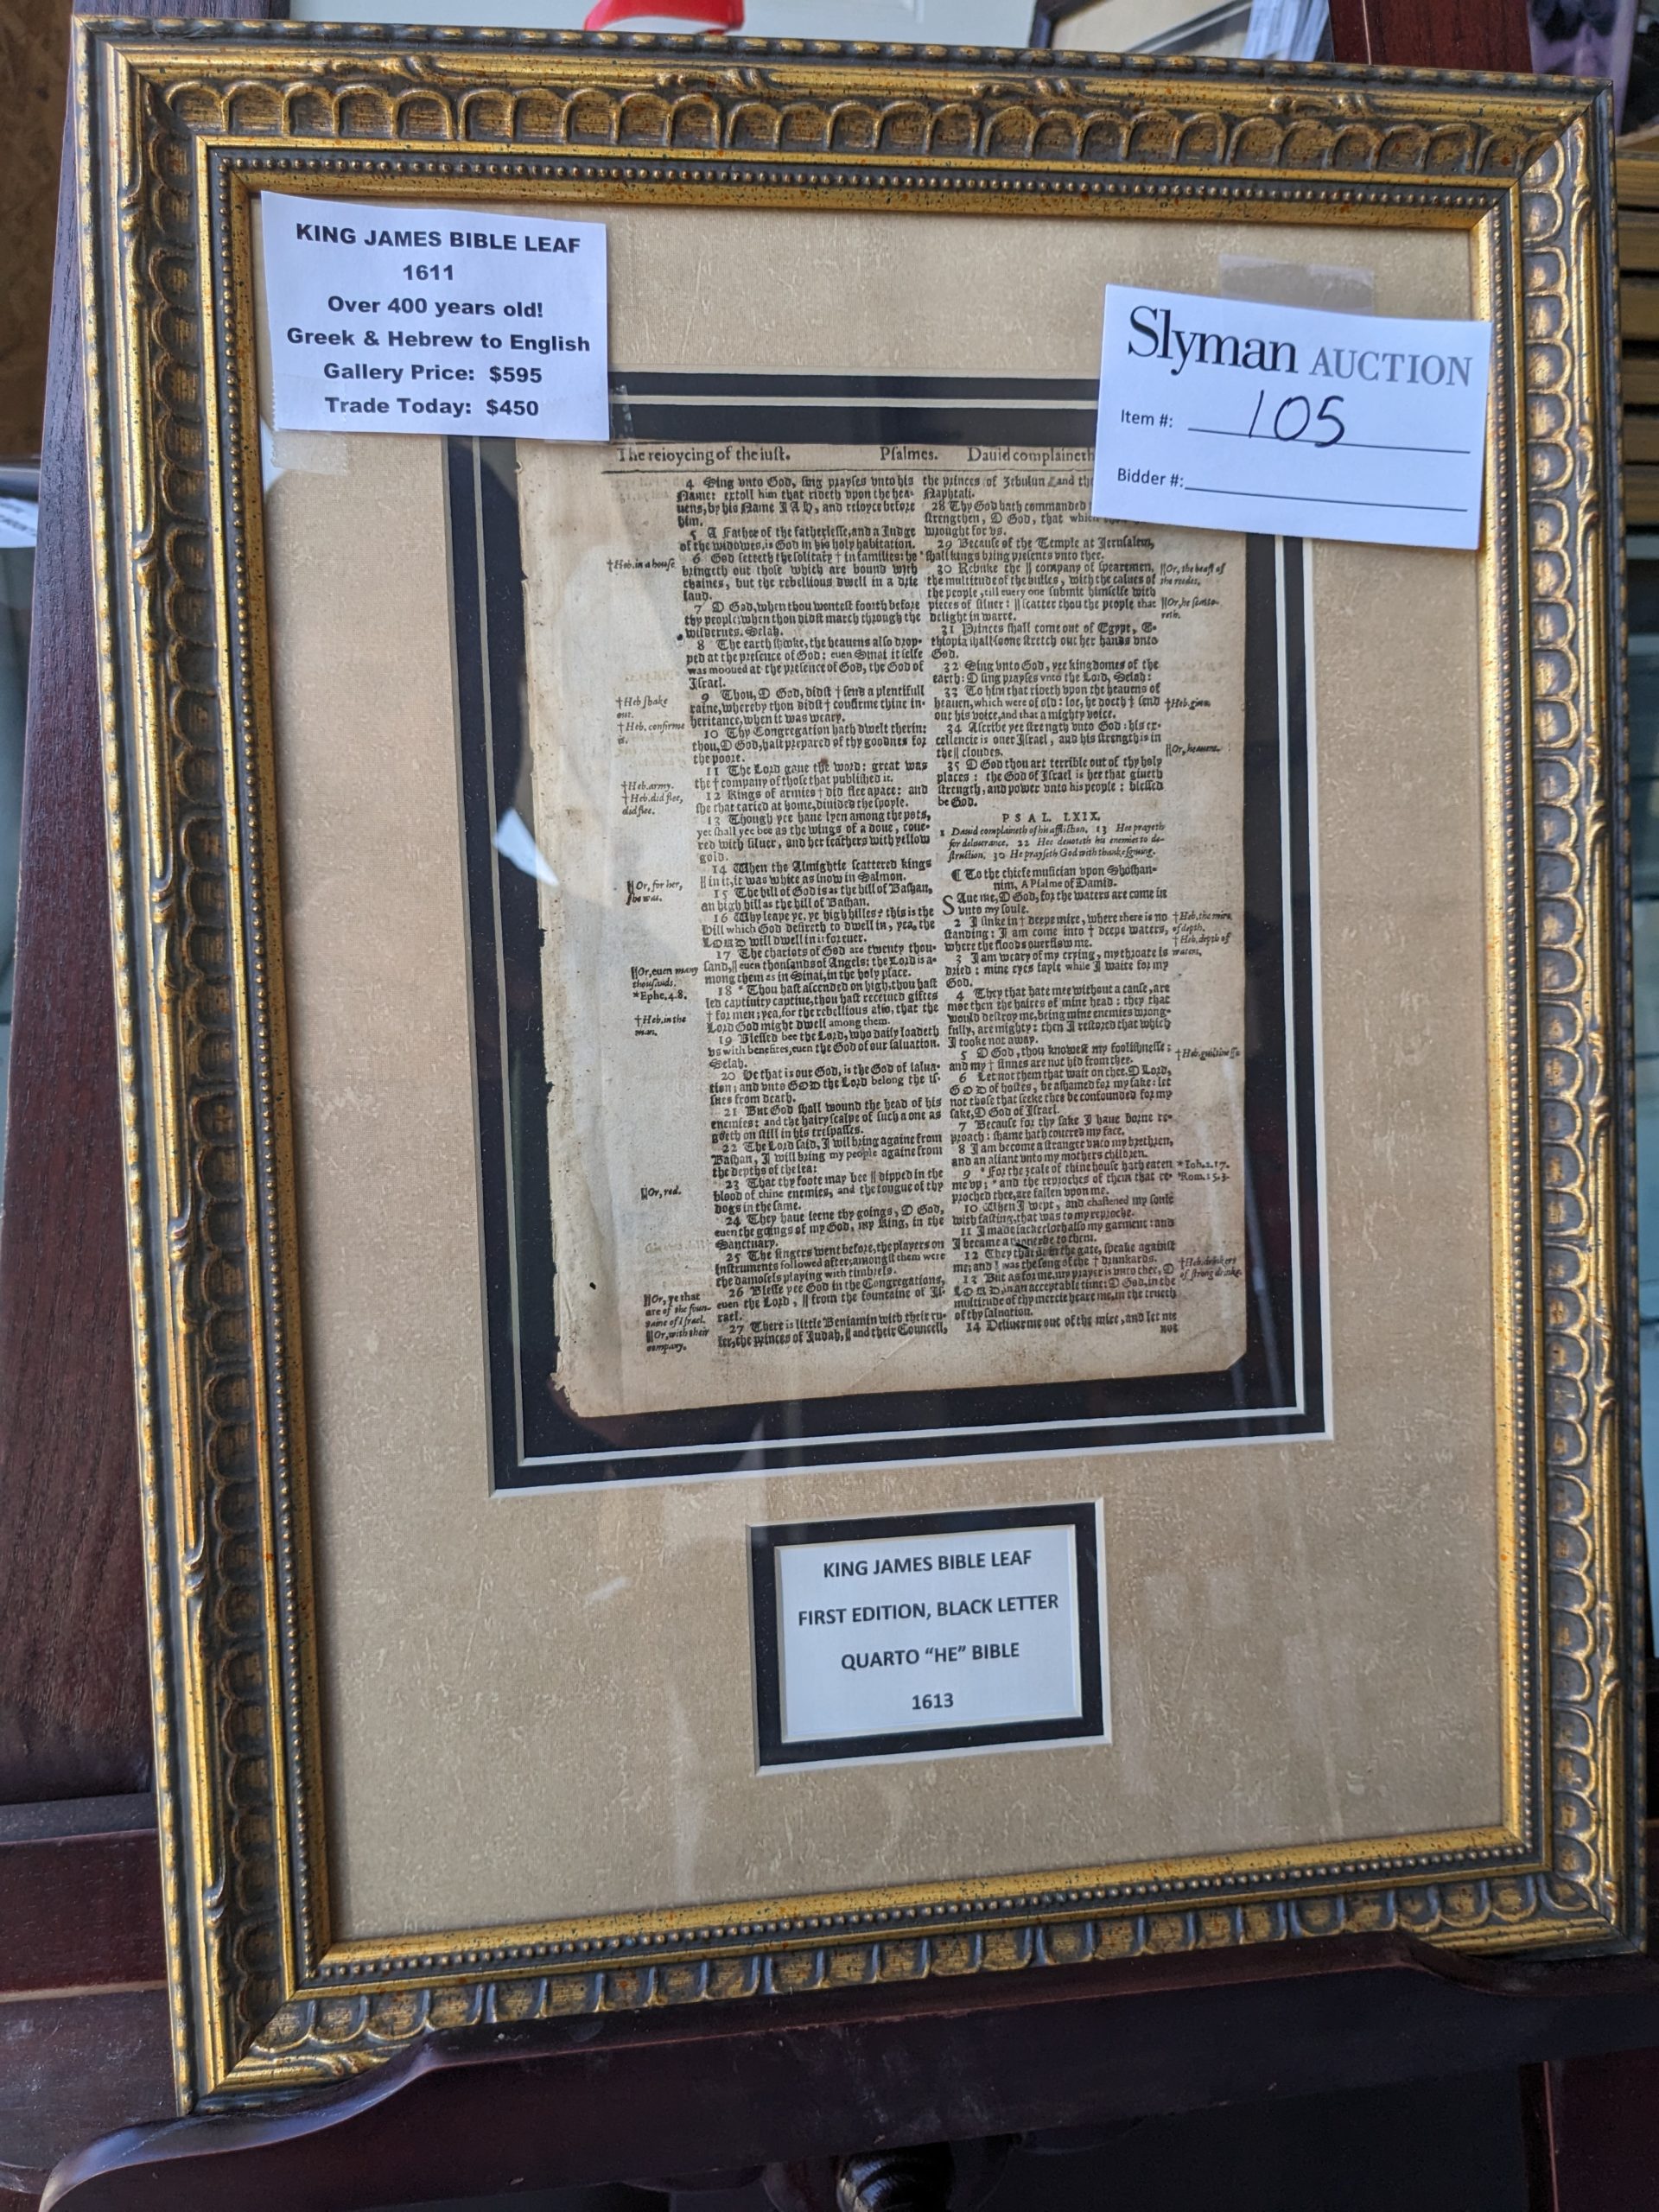 KING JAMES BIBLE LEAF
1611
Over 400 years old!
Greek & Hebrew to English
Gallery Price: $595
Trade Today: $450
Slyman AUCTION
Item #: 105
Bidder #:
The reioycing of the iuſt. Pſalmes. Dauid complaineth
4 Sing vnto God, ſing prayſes vnto his
Name: extoll him that rideth vpon the hea-
uens, by his Name JAH, and reioyce before
him.
5 A Father of the fatherleſſe, and a Judge
of the widowes, is God in his holy habitation.
6 God ſetteth the ſolitary † in families: he
bringeth out thoſe which are bound with
chaines, but the rebellious dwell in a drie
land.
7 O God, when thou wenteſt foorth before
thy people; when thou didſt march through the
wildernes. Selah.
8 The earth ſhooke, the heauens alſo drop-
ped at the preſence of God: euen Sinai it ſelfe
was mooued at the preſence of God, the God of
Iſrael.
9 Thou, O God, didſt † ſend a plentifull
raine, whereby thou didſt † confirme thine in-
heritance, when it was weary.
10 Thy Congregation hath dwelt therin:
thou, O God, haſt prepared of thy goodnes for
the poore.
11 The Lord gaue the word: great was
the † company of thoſe that publiſhed it.
12 Kings of armies † did flee apace: and
ſhe that taried at home, diuided the ſpoyle.
13 Though yee haue lyen among the pots,
yet ſhall yee bee as the wings of a doue, coue-
red with ſiluer, and her feathers with yellow
gold.
14 When the Almightie ſcattered kings
|| in it, it was white as ſnow in Salmon.
15 The hill of God is as the hill of Baſhan,
an high hill as the hill of Baſhan.
16 Why leape ye, ye high hilles? this is the
Hill which God deſireth to dwell in, yea, the
LORD will dwell in it for euer.
17 The chariots of God are twenty thou-
ſand, || euen thouſands of Angels: the Lord is a-
mong them as in Sinai, in the holy place.
18 * Thou haſt aſcended on high, thou haſt
led captiuity captiue, thou haſt receiued giftes
† for men; yea, for the rebellious alſo, that the
Lord God might dwell among them.
19 Bleſſed bee the Lord, who daily loadeth
vs with benefites, euen the God of our ſaluation.
Selah.
20 He that is our God, is the God of ſalua-
tion; and vnto GOD the Lord belong the iſ-
ſues from death.
21 But God ſhall wound the head of his
enemies: and the hairy ſcalpe of ſuch a one as
goeth on ſtill in his treſpaſſes.
22 The Lord ſaid, I wil bring againe from
Baſhan, I will bring my people againe from
the depths of the ſea:
23 That thy foote may bee || dipped in the
blood of thine enemies, and the tongue of thy
dogs in the ſame.
24 They haue ſeene thy goings, O God,
euen the goings of my God, my King, in the
Sanctuary.
25 The ſingers went before, the players on
inſtruments followed after; amongſt them were
the damoſels playing with timbrels.
26 Bleſſe yee God in the Congregations,
euen the Lord, || from the fountaine of Iſ-
rael.
27 There is little Beniamin with their ru-
ler, the princes of Judah, || and their Councell,
† Heb. in a houſe
† Heb. ſhake
out.
† Heb. confirme
it.
† Heb. army.
† Heb. did flee,
did flee.
|| Or, for her,
ſhe was.
|| Or, euen many
thouſands.
* Epheſ. 4. 8.
† Heb. in the
man.
|| Or, red.
|| Or, ye that
are of the foun-
taine of Iſrael.
|| Or, with their
company.
the princes of Zebulun and the
Naphtali.
28 Thy God hath commanded
ſtrengthen, O God, that which
wrought for vs.
29 Becauſe of the Temple at Jeruſalem,
ſhall kings bring preſents vnto thee.
30 Rebuke the || company of ſpearemen,
the multitude of the bulles, with the calues of
the people, till euery one ſubmit himſelfe with
pieces of ſiluer: || ſcatter thou the people that
delight in warre.
31 Princes ſhall come out of Egypt, E-
thiopia ſhall ſoone ſtretch out her hands vnto
God.
32 Sing vnto God, yee kingdomes of the
earth: O ſing prayſes vnto the Lord, Selah:
33 To him that rideth vpon the heauens of
heauen, which were of old: loe, he doeth † ſend
out his voice, and that a mighty voice.
34 Aſcribe yee ſtrength vnto God: his ex-
cellencie is ouer Iſrael, and his ſtrength is in
the || cloudes.
35 O God thou art terrible out of thy holy
places: the God of Iſrael is hee that giueth
ſtrength, and power vnto his people: bleſſed
be God.
PSAL. LXIX.
1 Dauid complaineth of his affliction. 13 Hee prayeth
for deliuerance, 22 Hee deuoteth his enemies to de-
ſtruction, 30 He prayſeth God with thankeſgiuing.
¶ To the chiefe muſician vpon Shoſhan-
nim, A Pſalme of Dauid.
SAue me, O God, for the waters are come in
vnto my ſoule.
2 I ſinke in † deepe mire, where there is no
ſtanding: I am come into † deepe waters,
where the floods ouerflow me.
3 I am weary of my crying, my throate is
dried: mine eyes fayle while I waite for my
God.
4 They that hate mee without a cauſe, are
moe then the haires of mine head: they that
would deſtroy me, being mine enemies wrong-
fully, are mighty: then I reſtored that which
I tooke not away.
5 O God, thou knoweſt my fooliſhneſſe;
and my † ſinnes are not hid from thee.
6 Let not them that wait on thee, O Lord,
GOD of hoſtes, be aſhamed for my ſake: let
not thoſe that ſeeke thee be confounded for my
ſake, O God of Iſrael.
7 Becauſe for thy ſake I haue borne re-
proach: ſhame hath couered my face.
8 I am become a ſtranger vnto my brethren,
and an aliant vnto my mothers children.
9 * For the zeale of thine houſe hath eaten
me vp; * and the reproches of them that re-
proched thee, are fallen vpon me.
10 When I wept, and chaſtened my ſoule
with faſting, that was to my reproche.
11 I made ſackecloth alſo my garment: and
I became a prouerbe to them.
12 They that ſit in the gate, ſpeake againſt
me; and I was the ſong of the † drunkards.
13 But as for me, my prayer is vnto thee, O
LORD, in an acceptable time: O God, in the
multitude of thy mercie heare me, in the trueth
of thy ſaluation.
14 Deliuer me out of the mire, and let me
not
|| Or, the beaſt of
the reedes.
|| Or, he ſcatte-
reth.
† Heb. giue.
|| Or, heauens.
† Heb. the mire
of depth.
† Heb. depth of
waters.
† Heb. guiltineſſe
* Ioh. 2. 17.
* Rom. 15. 3.
† Heb. drinkers
of ſtrong drinke.
KING JAMES BIBLE LEAF
FIRST EDITION, BLACK LETTER
QUARTO “HE” BIBLE
1613